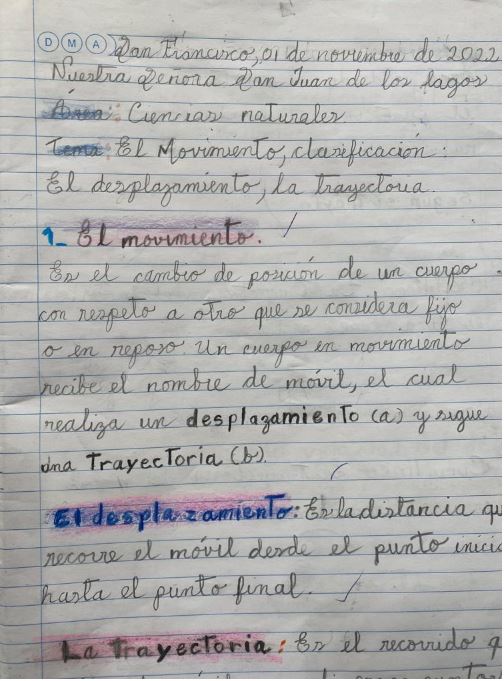 D M A San Francisco, 01 de noviembre de 2022
Nuestra Señora San Juan de los lagos
Área: Ciencias naturales
Tema: El Movimiento, clasificación:
El desplazamiento, la trayectoria.
1- El movimiento.
Es el cambio de posición de un cuerpo
con respeto a otro que se considera fijo
o en reposo. Un cuerpo en movimiento
recibe el nombre de móvil, el cual
realiza un desplazamiento (a) y sigue
una Trayectoria (b).
El desplazamiento: Es la distancia qu
recorre el móvil desde el punto inicia
hasta el punto final.
La Trayectoria: Es el recorrido q